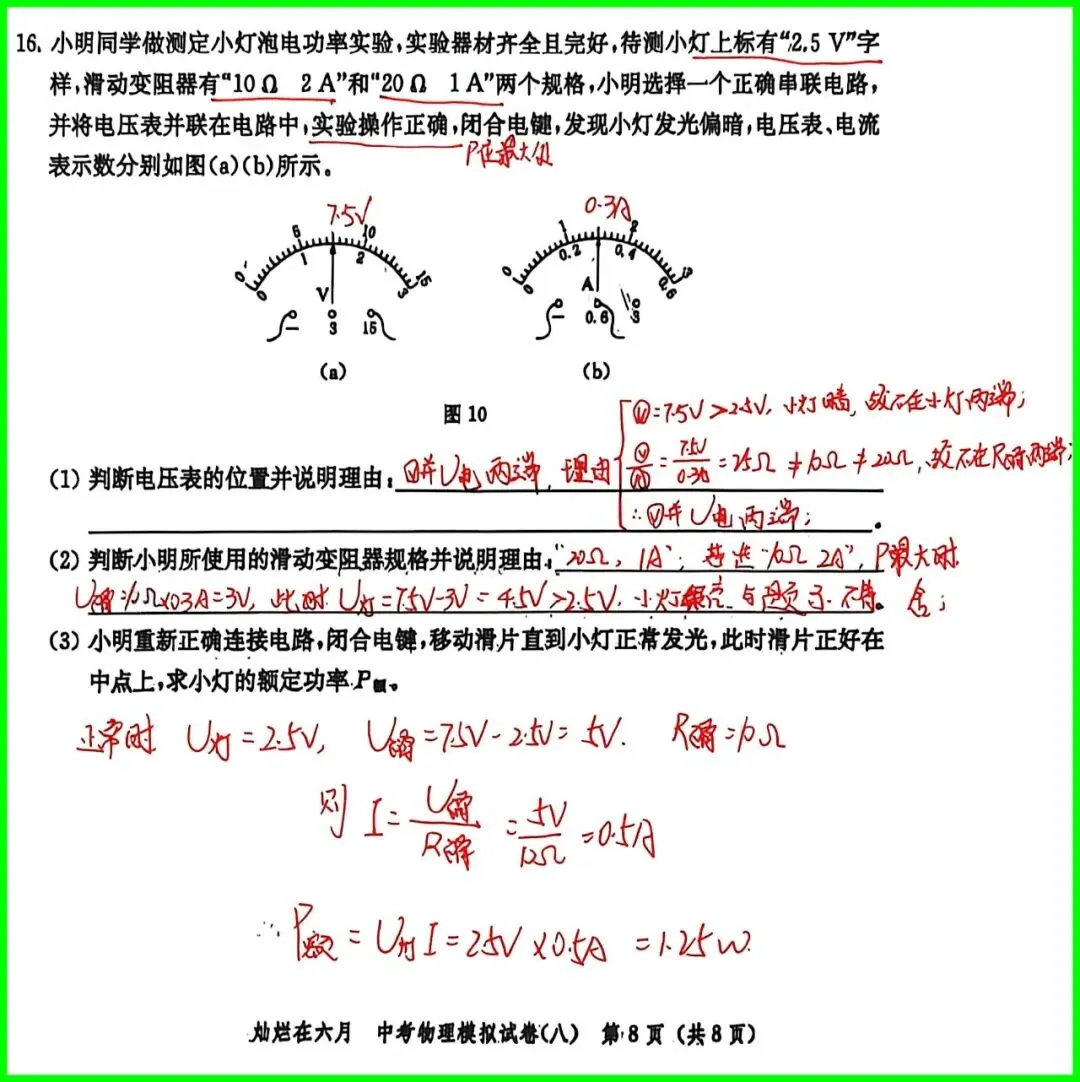 16. 小明同学做测定小灯泡电功率实验,实验器材齐全且完好,待测小灯上标有“2.5 V”字
样,滑动变阻器有“10 Ω 2 A”和“20 Ω 1 A”两个规格,小明选择一个正确串联电路,
并将电压表并联在电路中,实验操作正确,闭合电键,发现小灯发光偏暗,电压表、电流
P在最大值
表示数分别如图(a)(b)所示。
7.5V
0.3A
0 5 10 15
0 1 2 3
V
- 3 15
(a)
0 1 2 3
0 0.2 0.4 0.6
A
- 0.6 3
(b)
图 10
Ⓥ=7.5V>2.5V, 小灯暗, 故不在小灯两端;
(1) 判断电压表的位置并说明理由: Ⓥ并U电两端, 理由
Ⓥ/Ⓐ = 7.5V/0.3A = 25Ω ≠ 10Ω ≠ 20Ω, 故不在R滑两端;
∴Ⓥ并U电两端;
。
(2) 判断小明所使用的滑动变阻器规格并说明理由: “20Ω, 1A”; 若选“10Ω 2A”, P最大时
U滑=10Ω×0.3A=3V, 此时 U灯=7.5V-3V=4.5V>2.5V, 小灯很亮 与题意 不符。 舍;
(3) 小明重新正确连接电路,闭合电键,移动滑片直到小灯正常发光,此时滑片正好在
中点上,求小灯的额定功率 P额。
正常时 U灯=2.5V, U滑=7.5V-2.5V=5V. R滑=10Ω
则 I= U滑/R滑 = 5V/10Ω =0.5A
∴ P额 = U灯I = 2.5V×0.5A =1.25W.
灿烂在六月 中考物理模拟试卷(八) 第 8 页 (共 8 页)